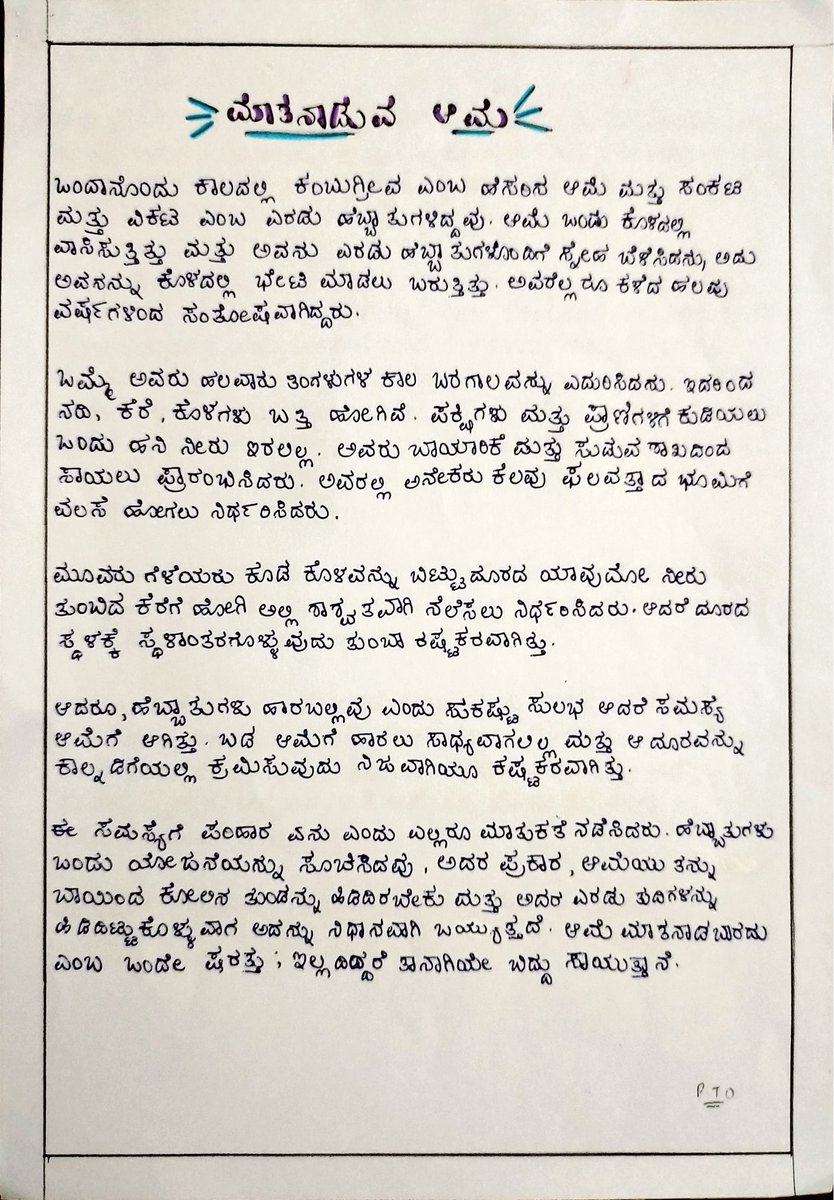 ಮಾತನಾಡುವ ಆಮೆ
ಒಂದಾನೊಂದು ಕಾಲದಲ್ಲಿ ಕಂಬುಗ್ರೀವ ಎಂಬ ಹೆಸರಿನ ಆಮೆ ಮತ್ತು ಸಂಕಟ
ಮತ್ತು ವಿಕಟ ಎಂಬ ಎರಡು ಹೆಬ್ಬಾತುಗಳಿದ್ದವು. ಆಮೆ ಒಂದು ಕೊಳದಲ್ಲಿ
ವಾಸಿಸುತ್ತಿತ್ತು ಮತ್ತು ಅವನು ಎರಡು ಹೆಬ್ಬಾತುಗಳೊಂದಿಗೆ ಸ್ನೇಹ ಬೆಳೆಸಿದನು, ಅದು
ಅವನನ್ನು ಕೊಳದಲ್ಲಿ ಭೇಟಿ ಮಾಡಲು ಬರುತ್ತಿತ್ತು. ಅವರೆಲ್ಲರೂ ಕಳೆದ ಹಲವು
ವರ್ಷಗಳಿಂದ ಸಂತೋಷವಾಗಿದ್ದರು.
ಒಮ್ಮೆ ಅವರು ಹಲವಾರು ತಿಂಗಳುಗಳ ಕಾಲ ಬರಗಾಲವನ್ನು ಎದುರಿಸಿದನು. ಇದರಿಂದ
ನದಿ, ಕೆರೆ, ಕೊಳಗಳು ಬತ್ತಿ ಹೋಗಿವೆ. ಪಕ್ಷಿಗಳು ಮತ್ತು ಪ್ರಾಣಿಗಳಿಗೆ ಕುಡಿಯಲು
ಒಂದು ಹನಿ ನೀರು ಇರಲಿಲ್ಲ. ಅವರು ಬಾಯಾರಿಕೆ ಮತ್ತು ಸುಡುವ ಶಾಖದಿಂದ
ಸಾಯಲು ಪ್ರಾರಂಭಿಸಿದರು. ಅವರಲ್ಲಿ ಅನೇಕರು ಕೆಲವು ಫಲವತ್ತಾದ ಭೂಮಿಗೆ
ವಲಸೆ ಹೋಗಲು ನಿರ್ಧರಿಸಿದರು.
ಮೂವರು ಗೆಳೆಯರು ಕೂಡ ಕೊಳವನ್ನು ಬಿಟ್ಟು ದೂರದ ಯಾವುದೋ ನೀರು
ತುಂಬಿದ ಕೆರೆಗೆ ಹೋಗಿ ಅಲ್ಲಿ ಶಾಶ್ವತವಾಗಿ ನೆಲೆಸಲು ನಿರ್ಧರಿಸಿದರು. ಆದರೆ ದೂರದ
ಸ್ಥಳಕ್ಕೆ ಸ್ಥಳಾಂತರಗೊಳ್ಳುವುದು ತುಂಬಾ ಕಷ್ಟಕರವಾಗಿತ್ತು.
ಆದರೂ, ಹೆಬ್ಬಾತುಗಳು ಹಾರಬಲ್ಲವು ಎಂದು ಸುಲಭ ಆದರೆ ಸಮಸ್ಯೆ
ಆಮೆಗೆ ಆಗಿತ್ತು. ಬಡ ಆಮೆಗೆ ಹಾರಲು ಸಾಧ್ಯವಾಗಲಿಲ್ಲ ಮತ್ತು ಆ ದೂರವನ್ನು
ಕಾಲ್ನಡಿಗೆಯಲ್ಲಿ ಕ್ರಮಿಸುವುದು ನಿಜವಾಗಿಯೂ ಕಷ್ಟಕರವಾಗಿತ್ತು.
ಈ ಸಮಸ್ಯೆಗೆ ಪರಿಹಾರ ಏನು ಎಂದು ಎಲ್ಲರೂ ಮಾತುಕತೆ ನಡೆಸಿದರು. ಹೆಬ್ಬಾತುಗಳು
ಒಂದು ಯೋಜನೆಯನ್ನು ಸೂಚಿಸಿದವು, ಅದರ ಪ್ರಕಾರ, ಆಮೆಯು ತನ್ನ
ಬಾಯಿಂದ ಕೋಲಿನ ತುಂಡನ್ನು ಹಿಡಿದಿರಬೇಕು ಮತ್ತು ಅದರ ಎರಡು ತುದಿಗಳನ್ನು
ಹಿಡಿದಿಟ್ಟುಕೊಳ್ಳುವಾಗ ಅದನ್ನು ನಿಧಾನವಾಗಿ ಒಯ್ಯುತ್ತದೆ. ಆಮೆ ಮಾತನಾಡಬಾರದು
ಎಂಬ ಒಂದೇ ಷರತ್ತು; ಇಲ್ಲದಿದ್ದರೆ ತಾನಾಗಿಯೇ ಬಿದ್ದು ಸಾಯುತ್ತಾನೆ.
PTO